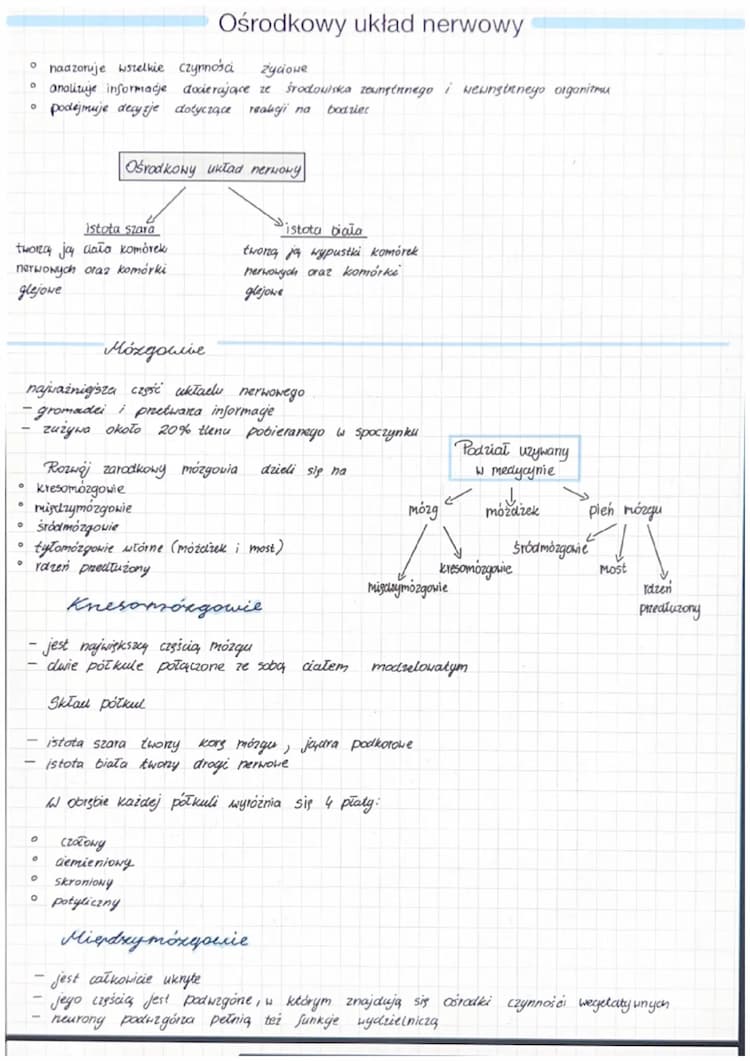 Ośrodkowy układ nerwowy
nadzoruje wszelkie czynności życiowe
analizuje informacje docierające ze środowiska zewnętrznego i wewnętrznego organizmu
podejmuje decyzje dotyczące reakcji na bodziec
Ośrodkowy układ nerwowy
istota szara
istota biała
tworzą ją ciała komórek
nerwowych oraz komórki
glejowe
tworzą ją wypustki komórek
nerwowych oraz komórki
glejowe
Mózgowie
najważniejsza część układu nerwowego
- gromadzi i przetwarza informacje
- zużywa około 20% tlenu pobieranego w spoczynku
Rozwój zarodkowy mózgowia dzieli się na
kresomózgowie
międzymózgowie
śródmózgowie
tyłomózgowie wtórne (móżdżek i most)
rdzeń przedłużony
Podział używany
w medycynie
mózg
móżdżek
pień mózgu
śródmózgowie
kresomózgowie
most
międzymózgowie
rdzeń
przedłużony
Kresomózgowie
- jest największą częścią mózgu
- dwie półkule połączone ze sobą ciałem modzelowatym
Skład półkul
- istota szara tworzy korę mózgu, jądra podkorowe
- istota biała tworzy drogi nerwowe
W obrębie każdej półkuli wyróżnia się 4 płaty:
czołowy
ciemieniowy
skroniowy
potyliczny
Międzymózgowie
- jest całkowicie ukryte
- jego częścią jest podwzgórze, w którym znajdują się ośrodki czynności wegetatywnych
- neurony podwzgórza pełnią też funkcje wydzielniczą